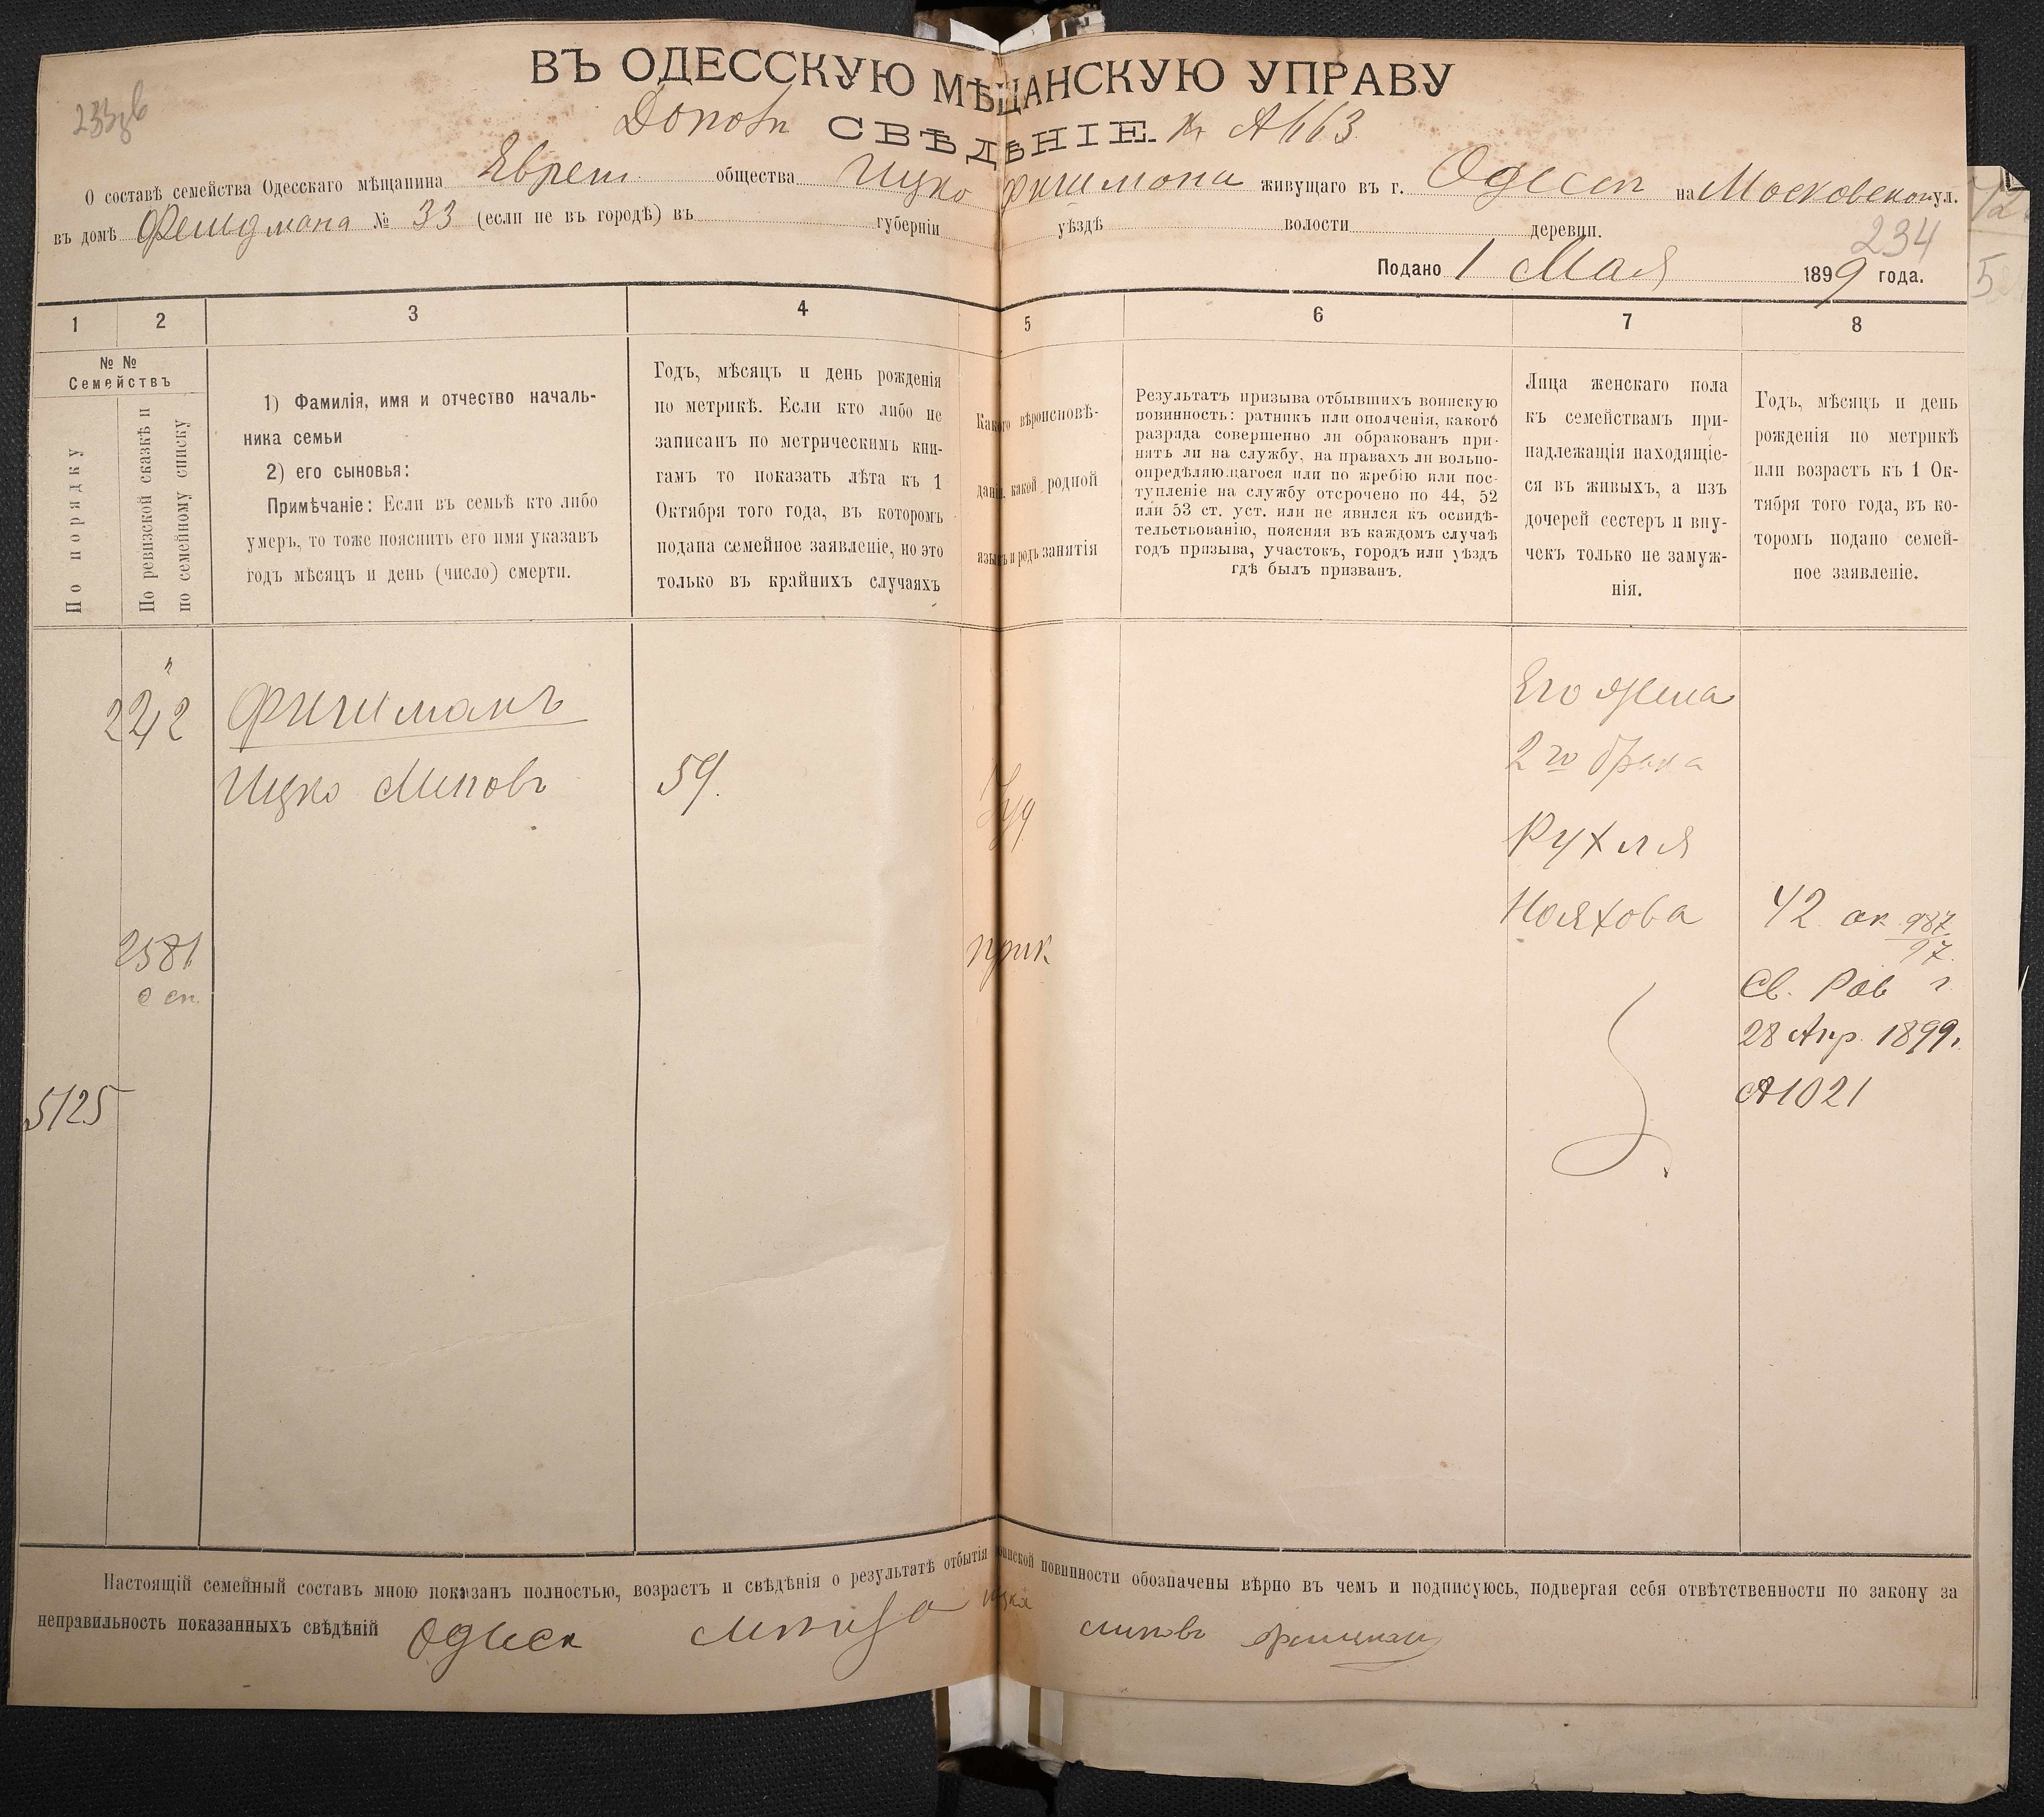 ВЪ ОДЕССКУЮ МѢЩАНСКУЮ УПРАВУ
СВѢДѢНІЕ.
О составѣ семейства Одесскаго мѣщанина Еврей общества Ицко живущаго въ г. Одессп на Московскойул.
въ домѣ Фельдмана № 33 (если не въ городѣ) въ губерніи уѣздѣ волости деревни.
234
Подано 1 Мая 1899 года.
1 2 3 4 5 6 7 8
№ №
Семействъ
По порядку
По ревизской сказкѣ и
по семейному списку
1) Фамилія, имя и отчество началь-
ника семьи
2) его сыновья:
Примѣчаніе: Если въ семьѣ кто либо
умеръ, то тоже пояснить его имя указавъ
годъ мѣсяцъ и день (число) смерти.
Годъ, мѣсяцъ и день рожденія
по метрикѣ. Если кто либо не
записанъ по метрическимъ кни-
гамъ то показать лѣта къ 1
Октября того года, въ которомъ
подана семейное заявленіе, но это
только въ крайнихъ случаяхъ
Какого вѣроисповѣ-
данія. какой родной
языкъ и родъ занятія
Результатъ призыва отбывшихъ воинскую
повинность: ратникъ или ополченія, какого
разряда совершенно ли обракованъ при-
нятъ ли на службу, на правахъ ли вольно-
опредѣляющагося или по жребію или пос-
тупленіе на службу отсрочено по 44, 52
или 53 ст. уст. или не явился къ освидѣ-
тельствованію, поясняя въ каждомъ случаѣ
годъ призыва, участокъ, городъ или уѣздъ
гдѣ былъ призванъ.
Лица женскаго пола
къ семействамъ при-
надлежащія находящіе-
ся въ живыхъ, а изъ
дочерей сестеръ и вну-
чекъ только не замуж-
нія.
Годъ, мѣсяцъ и день
рожденія по метрикѣ
или возрастъ къ 1 Ок-
тября того года, въ ко-
торомъ подано семей-
ное заявленіе.
Его жена
2го брака
Ицко Липовъ 59.
Іуд
Рухля
Нояхова 42
2581
прик
Св. Рав
28 Апр. 1899г
5125
1021
Настоящій семейный составъ мною показанъ полностью, возрастъ и свѣдѣнія о результатѣ отбытія воинской повинности обозначены вѣрно въ чемъ и подписуюсь, подвергая себя отвѣтственности по закону за
неправильность показанныхъ свѣдѣній Одесск липовъ